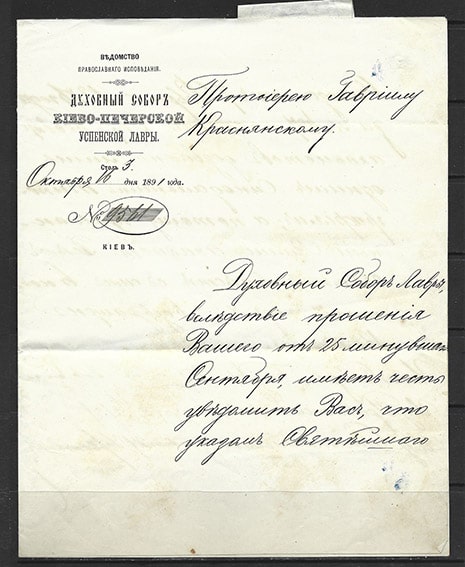 ВѢДОМСТВО
ПРАВОСЛАВНАГО ИСПОВѢДАНІЯ.
ДУХОВНЫЙ СОБОРЪ
КІЕВО-ПЕЧЕРСКОЙ
УСПЕНСКОЙ ЛАВРЫ.
Столъ 3.
Октября дня 1891 года.
№
КІЕВЪ.
Протоіерею Гавріилу
Краснянскому.
Духовный Соборъ Лавры,
вслѣдствіе прошенія
Вашего отъ 25 минувшаго
Сентября, имѣетъ честь
увѣдомить Васъ, что
указомъ Святѣйшаго